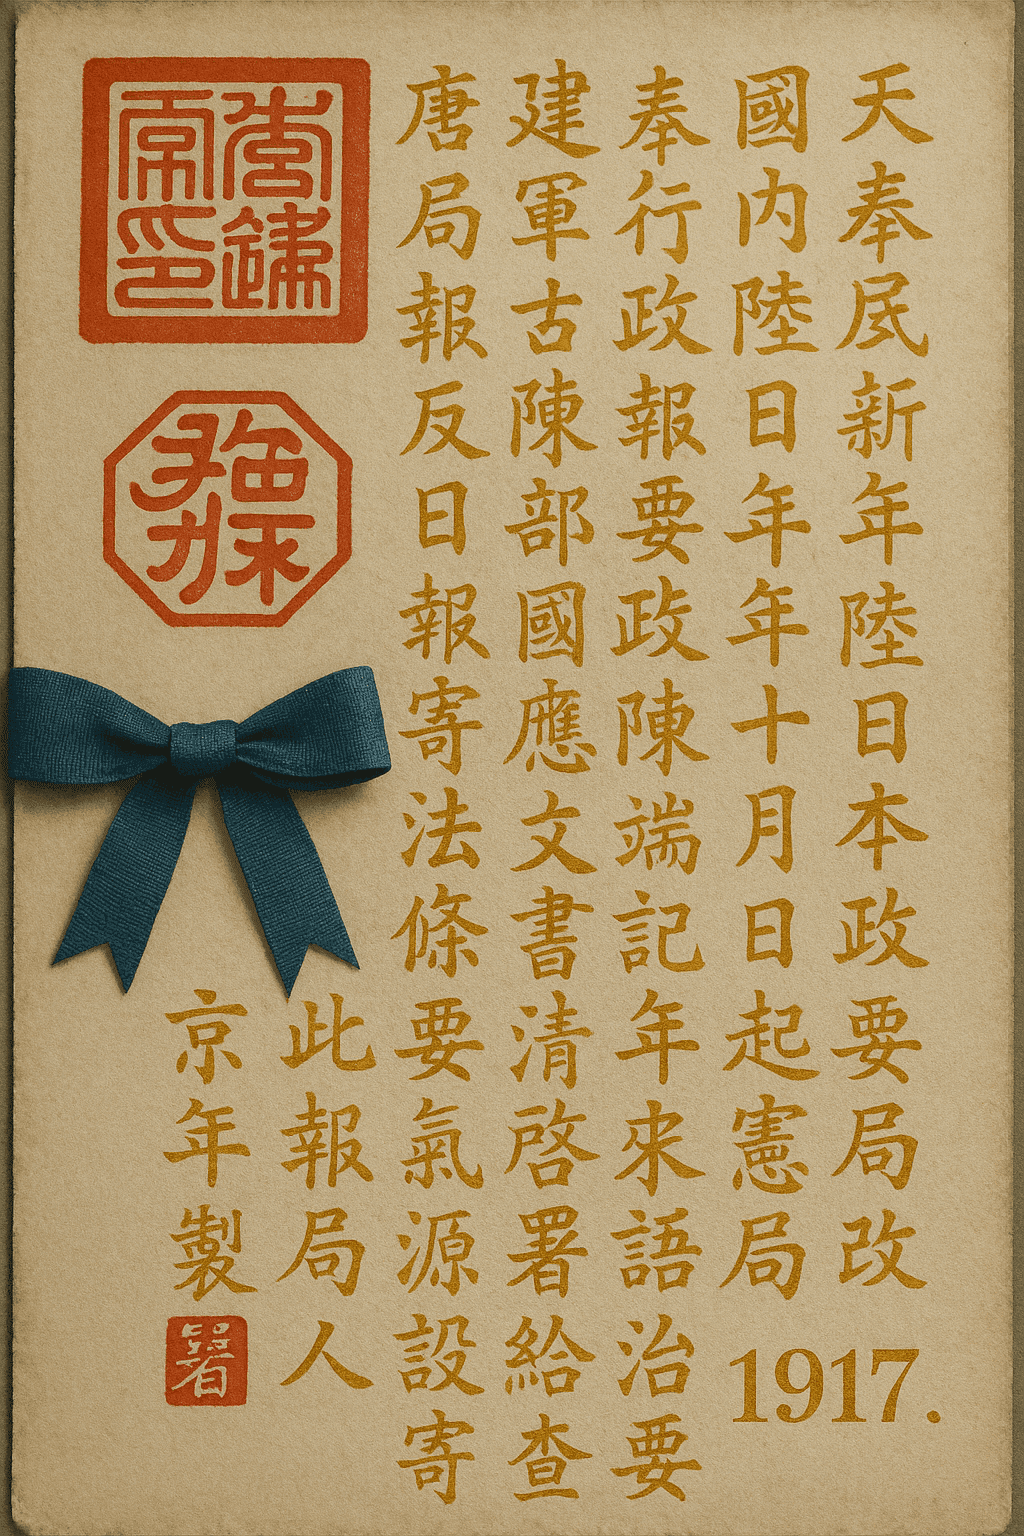 天奉㞐新年陸日本政要局改
國内陸日年年十月日起憲局
1917.
奉行政報要政陳端記年來語治要
建軍古陳部國應文書清啓署給查
唐局報反日報寄法條要氣源設寄
此報局人
京年製